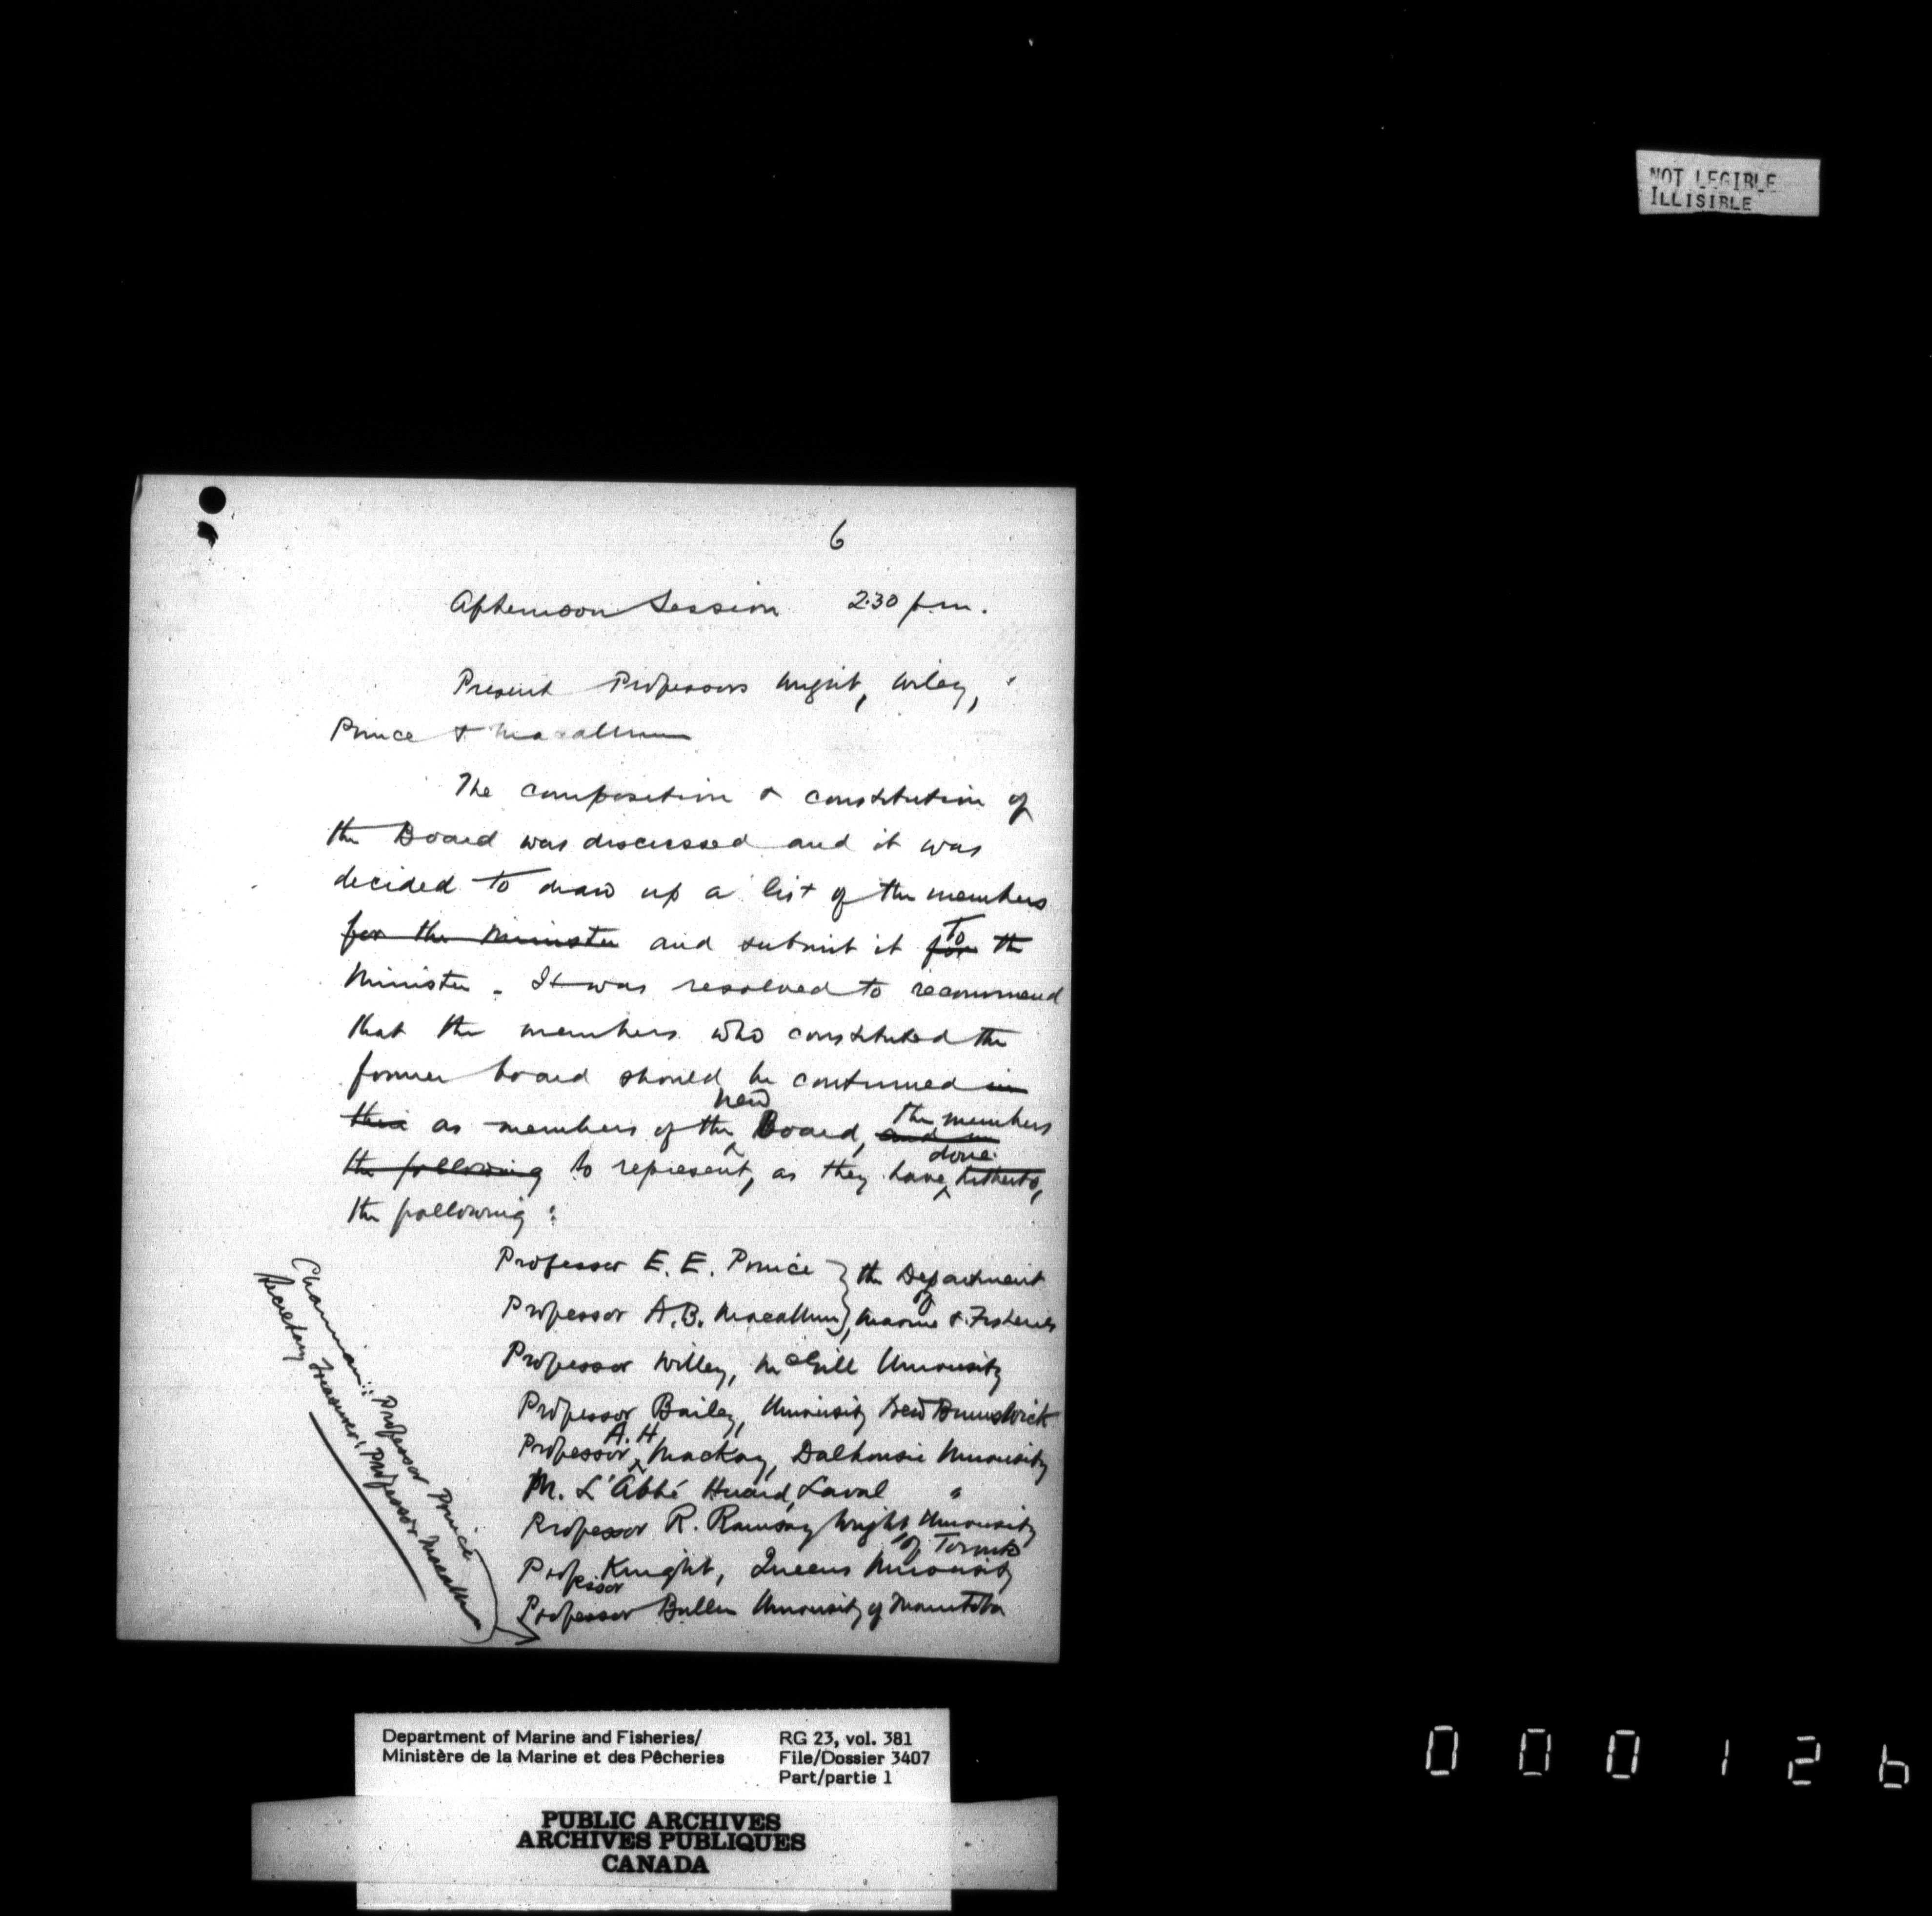 NOT LEGIBLE
ILLISIBLE
6
Afternoon Session 2.30 p.m.
Present Professors Wright, Wiley,
Prince & Macallum
The composition & constitution of
the Board was discussed and it was
decided to draw up a list of the members
for the Minister and submit it for To the
Minister - It was resolved to recommend
that the members who constituted the
former board should be continued in
as members of the new Board, and in the members
the following to represent, as they have done hitherto,
the following :
Professor E. E. Prince } the Department
of
Professor A.B. Macallum }, Marine & Fisheries
Professor Willey, McGill University
Professor Bailey, University New Brunswick
Professor A.H Mackay, Dalhousie University
M. L'Abbé Huard, Laval "
Professor R. Ramsay Wright, University
of Toronto
Professor Knight, Queens University
Professor Buller University of Manitoba
Chairman: Professor Prince
Secretary Treasurer: Professor Macallum
Department of Marine and Fisheries/
Ministère de la Marine et des Pêcheries
RG 23, vol. 381
File/Dossier 3407
Part/partie 1
PUBLIC ARCHIVES
ARCHIVES PUBLIQUES
CANADA
000126